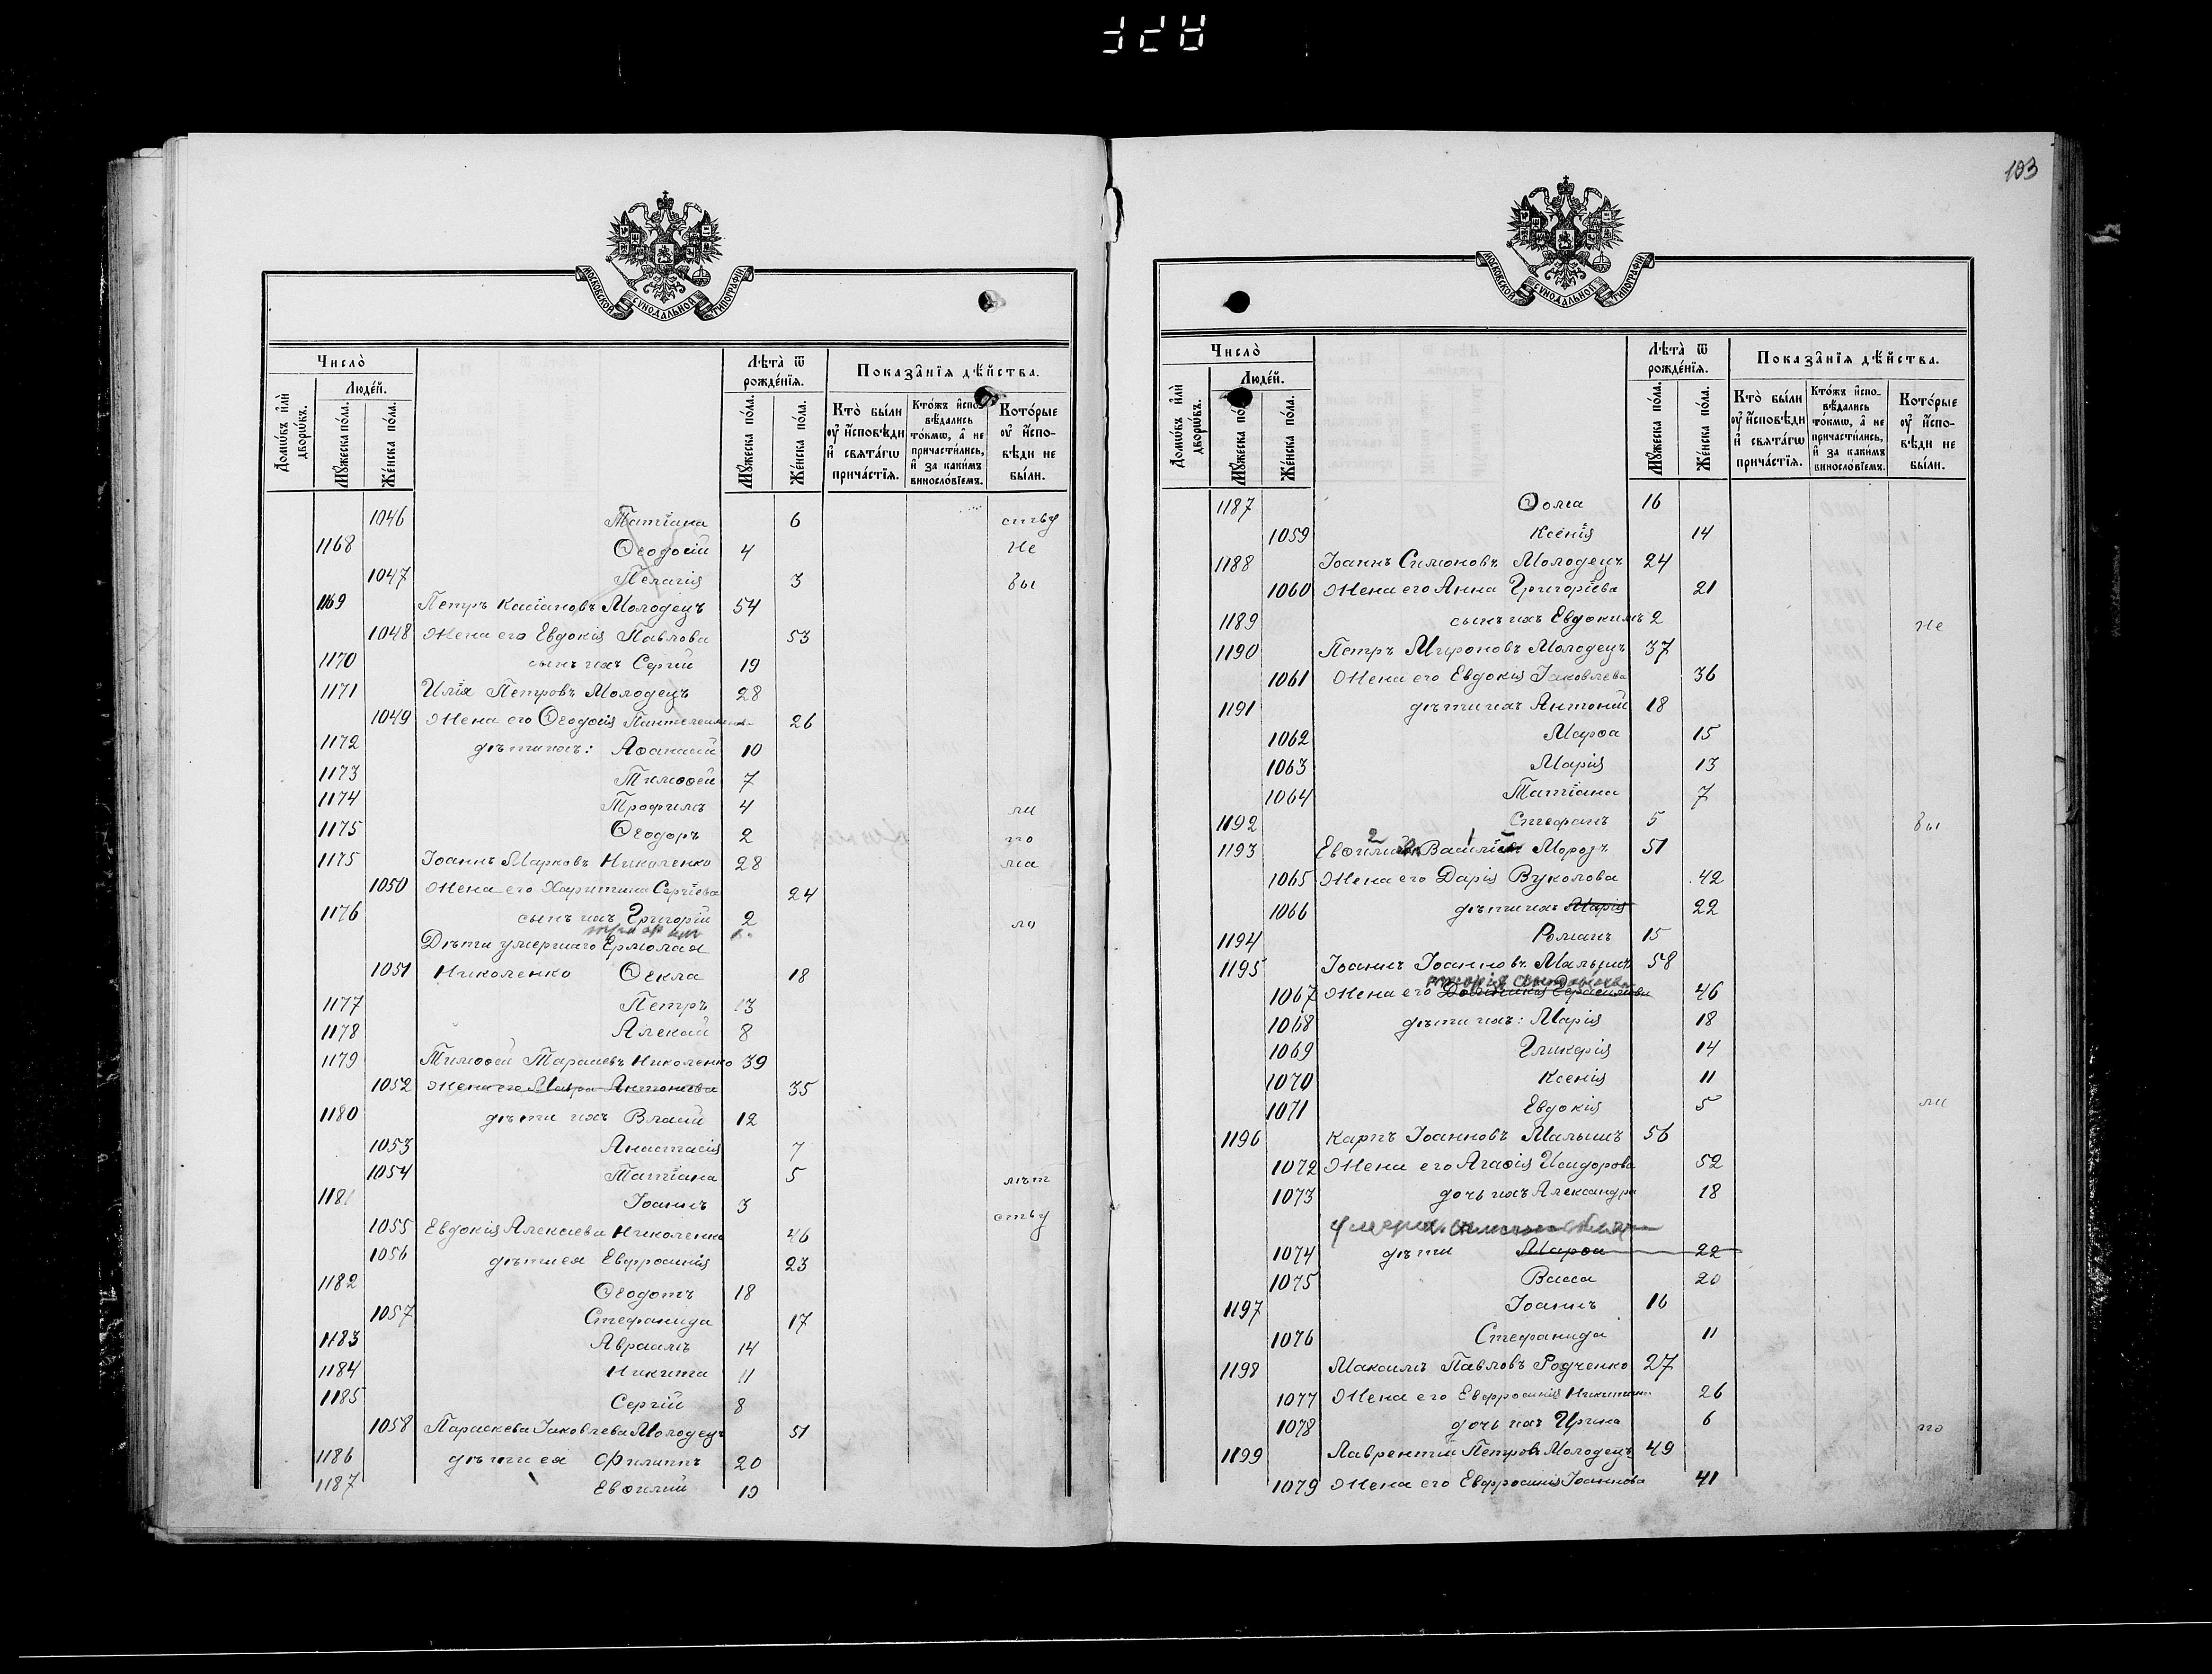 103
МОСКОВСКОЙ СУНОДАЛЬНОЙ ТИПОГРАФІИ
Число̀
Людéй.
Лѣта̀ ѿ рождéнїя.
Показа̂нїя дѣ́йства.
Домѡ́въ и҆лѝ дворѡ́въ.
Мꙋ́жеска по́ла.
Же́нска по́ла.
Мꙋ́жеска по́ла.
Же́нска по́ла.
Кто̀ бы́ли ᲂу҆ и҆сповѣди и҆ свята́гѡ прича́стїя.
Кто́жъ и҆спо-вѣ̆дались то́кмѡ, а҆ не причасти́лись, и҆ за каки́мъ винословїемъ.
Кото́рые ᲂу҆ и҆спо-вѣди не бы́ли.
1046 Татіана 6 ству
1168 Ѳеодосій 4 Не
1047 Пелагія 3 бы
1169 Петръ Касіановъ Молодецъ 54
1048 Жена его Евдокія Павлова 53
1170 сынъ ихъ Сергій 19
1171 Илія Петровъ Молодецъ 28
1049 Жена его Ѳеодосія Пантелеимонова 26
1172 дѣти ихъ: Аѳанасій 10
1173 Тимоѳей 7
1174 Трофимъ 4 ли
1175 Ѳеодоръ 2 по
1175 Іоаннъ Марковъ Николенко 28 ма
1050 Жена его Харитина Сергіева 24
1176 сынъ ихъ Григорій 2 ло
Дѣти умершаго Ермолая
1051 Николенко Ѳекла 18
1177 Петръ 13
1178 Алексій 8
1179 Тимоѳей Тарасіевъ Николенко 39
1052 Жена его Мавра Антоніева 35
1180 дѣти ихъ Власій 12
1053 Анастасія 7
1054 Татіана 5 лѣт
1181 Іоаннъ 3 ству
1055 Евдокія Алексіева Николенко 46
1056 дѣти ея Евфросинія 23
1182 Ѳеодотъ 18
1057 Стефанида 17
1183 Авраамъ 14
1184 Никита 11
1185 Сергій 8
1058 Параскева Іаковлева Молодецъ 51
1186 дѣти ея Филиппъ 20
1187 Евѳимій 19
МОСКОВСКОЙ СУНОДАЛЬНОЙ ТИПОГРАФІИ
Число̀
Людéй.
Лѣта̀ ѿ рождéнїя.
Показа̂нїя дѣ́йства.
Домѡ́въ и҆лѝ дворѡ́въ.
Мꙋ́жеска по́ла.
Же́нска по́ла.
Мꙋ́жеска по́ла.
Же́нска по́ла.
Кто̀ бы́ли ᲂу҆ и҆сповѣди и҆ свята́гѡ прича́стїя.
Кто́жъ и҆спо-вѣ̆дались то́кмѡ, а҆ не причасти́лись, и҆ за каки́мъ винословїемъ.
Кото́рые ᲂу҆ и҆спо-вѣди не бы́ли.
1187 Ѳома 16
1059 Ксенія 14
1188 Іоаннъ Симоновъ Молодецъ 24
1060 Жена его Анна Григоріева 21
1189 сынъ ихъ Евдокимъ 2 Не
1190 Петръ Мироновъ Молодецъ 37
1061 Жена его Евдокія Іаковлева 36
1191 дѣти ихъ Антоній 18
1062 Марѳа 15
1063 Марія 13
1064 Татіана 7
1192 Стефанъ 5 бы
2 1
1193 Евѳимій Василій Морозъ 51
1065 Жена его Дарія Вуколова 42
1066 дѣти ихъ Марія 22
1194 Романъ 15
1195 Іоаннъ Іоанновъ Малышъ 58
1067 Жена его 46
1068 дѣти ихъ: Марія 18
1069 Гликерія 14
1070 Ксенія 11
1071 Евдокія 5 ли
1196 Карпъ Іоанновъ Малышъ 56
1072 Жена его Агаѳія Исидорова 52
1073 дочь ихъ Александра 18
умера.
1074 дѣти Марѳа 22
1075 Васса 20
1197 Іоаннъ 16
1076 Стефанида 11
1198 Максимъ Павловъ Родченко 27
1077 Жена его Евфросинія Никитина 26
1078 дочь ихъ Ирина 6 по
1199 Лаврентій Петровъ Молодецъ 49
1079 Жена его Евфросинія Іоаннова 41